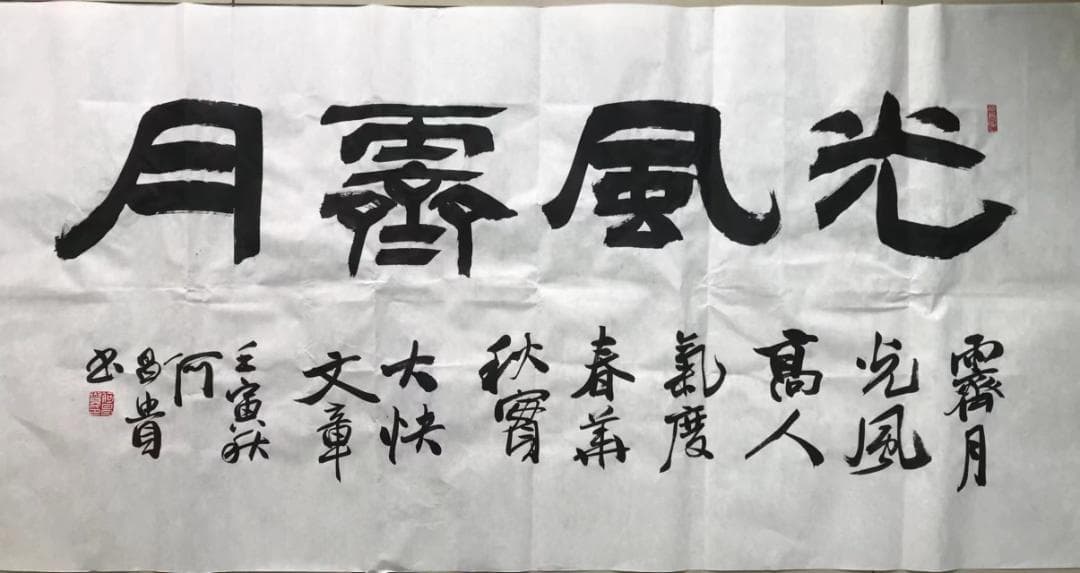 光風霽月
霽月
光風
高人
氣度
春華
秋實
大快
文章
壬寅秋
阿
昌貴
書